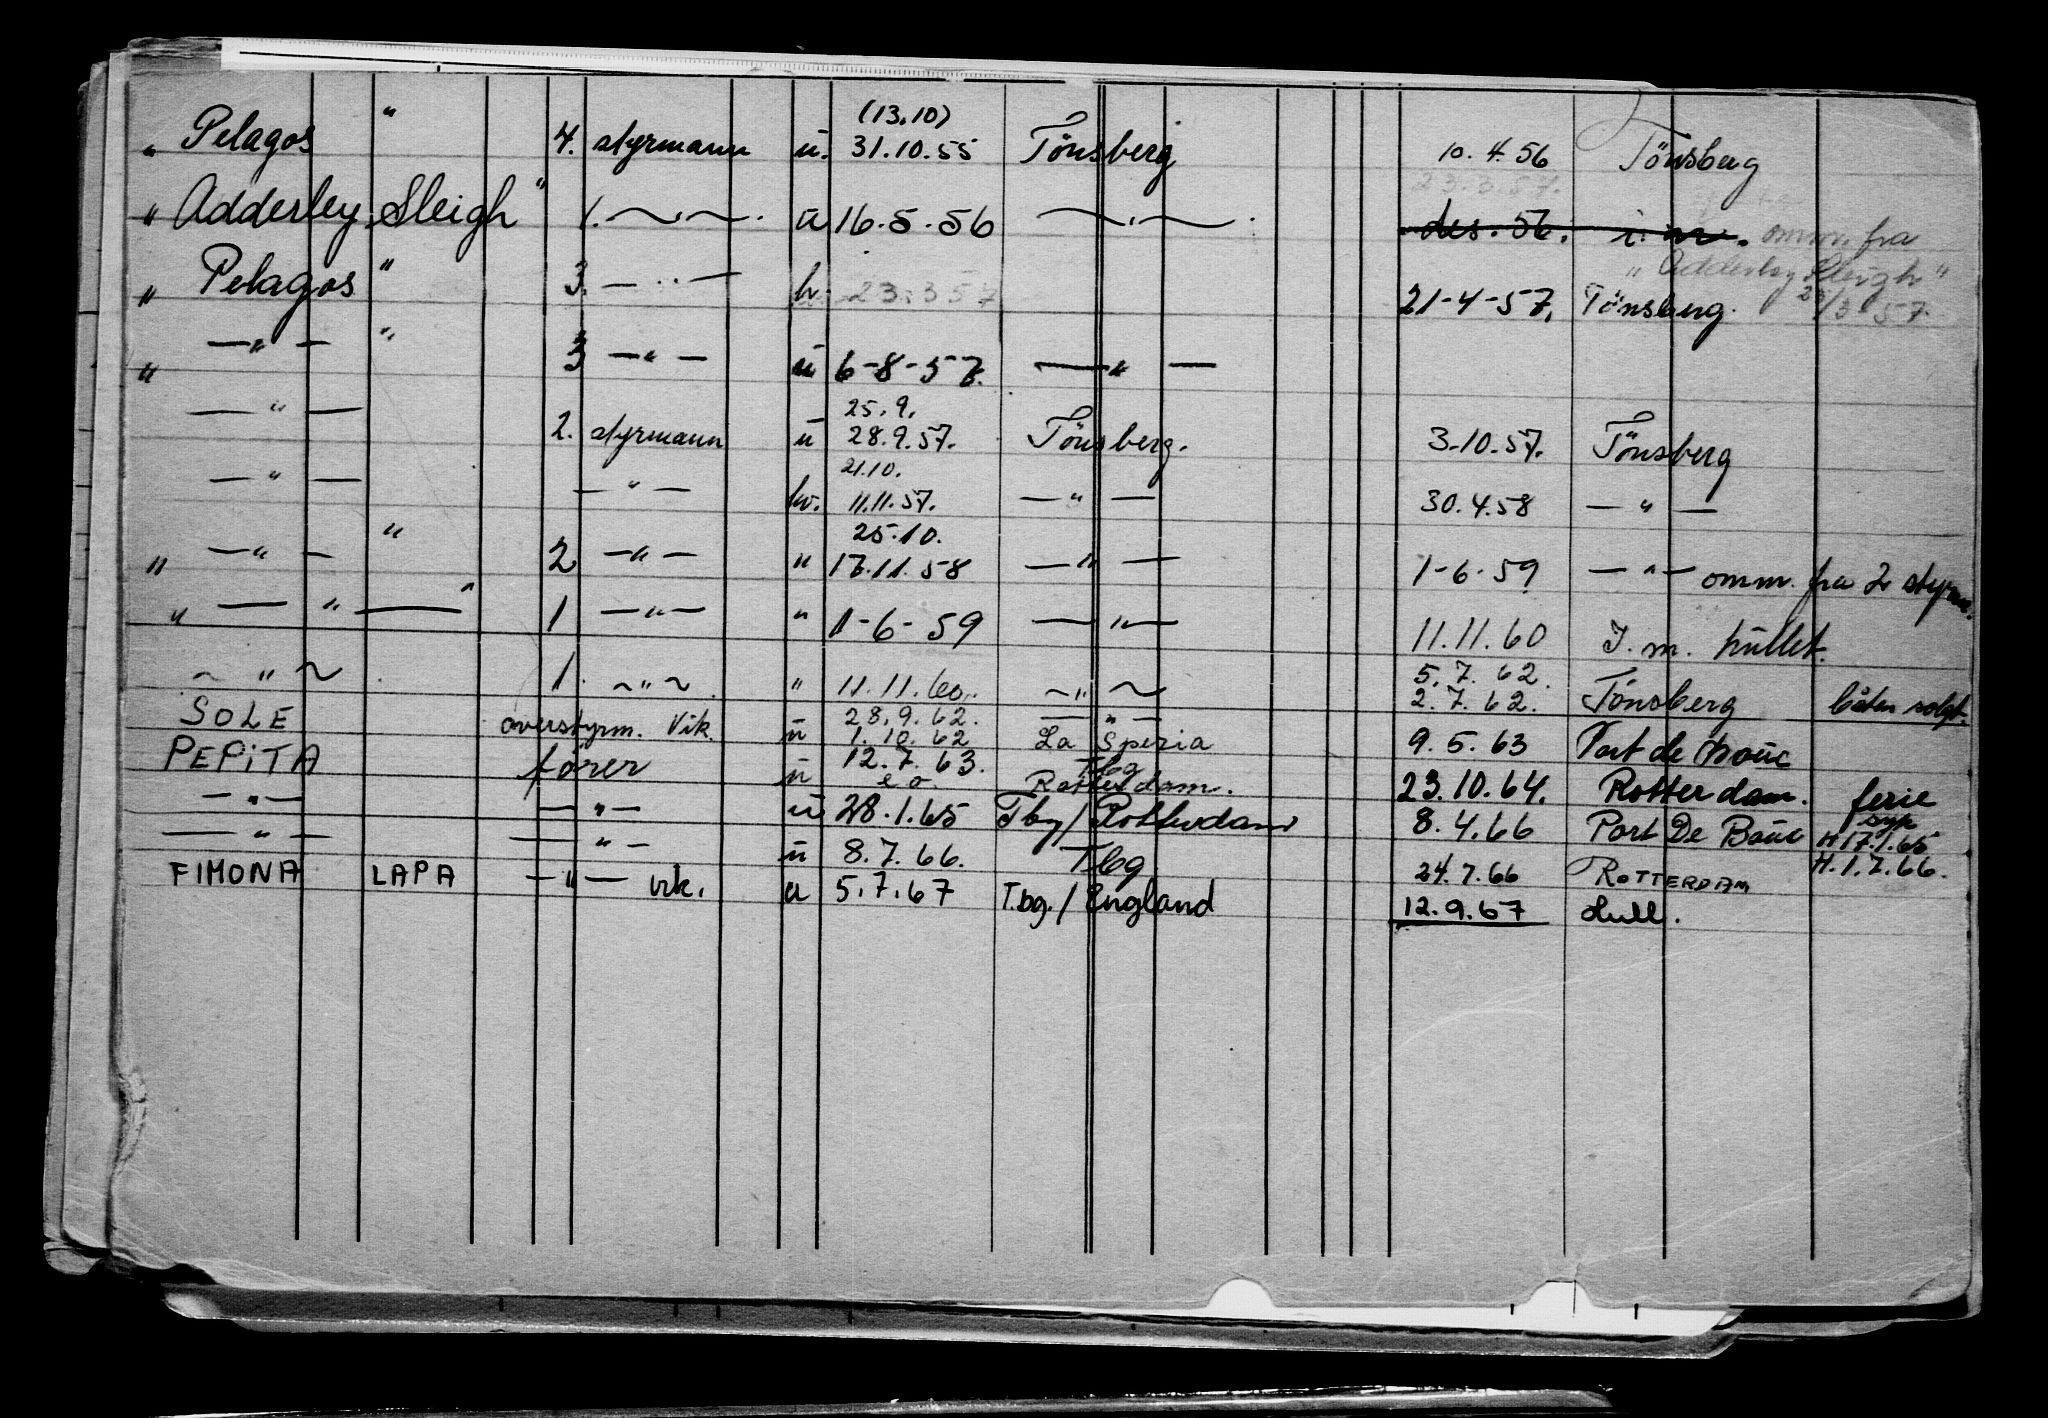 (13.10)
„ Pelagos " 4. styrmann u. 31.10.55 Tönsberg 10.4.56 Tönsberg
23.3.57.
„ Adderley Sleigh" 1. ~ " ~ . u 16.5.56 ~ " ~ . des. 56. i. m. omm. fra
„ Pelagos " 3. — " — h. 23.3 57 "Adderley Sleigh"
21-4-57. Tönsberg. 23/3-57.
„ — " — " 3 — " — u 6-8-57. — " —
— " — 25.9.
2. styrmann u 28.9.57. Tönsberg. 3.10.57. Tönsberg
— " — 21.10.
— " — hv. 11.11.57. — " — 30.4.58 — " —
25.10.
„ — " — " 2 — " — " 17.11.58 — " — 1-6-59 — " — omm. fra 2 styrm.
„ — " — " 1 — " — " 1-6-59 — " — 11.11.60 I. m. hullet.
5.7.62.
~ " ~ 1. ~ " ~ " 11.11.60. ~ " ~ 2.7.62. Tönsberg båten solgt.
28.9.62. — " —
SOLE overstyrm. Vik. u 1.10.62 La Spezia 9.5.63 Port de Bouc
12.7.63. Tbg
PEPITA förer u e o. Rotterdam. 23.10.64. Rotterdam. ferie
— " — — " — u 28.1.65 Tbg/Rotterdam 8.4.66 Port De Bouc syk H 17.1.65
— " — — " — u 8.7.66. Tbg 24.7.66 ROTTERDAM H.1.7.66.
FIMONA LAPA — " — vik. u 5.7.67 T.bg./England 12.9.67 Hull.